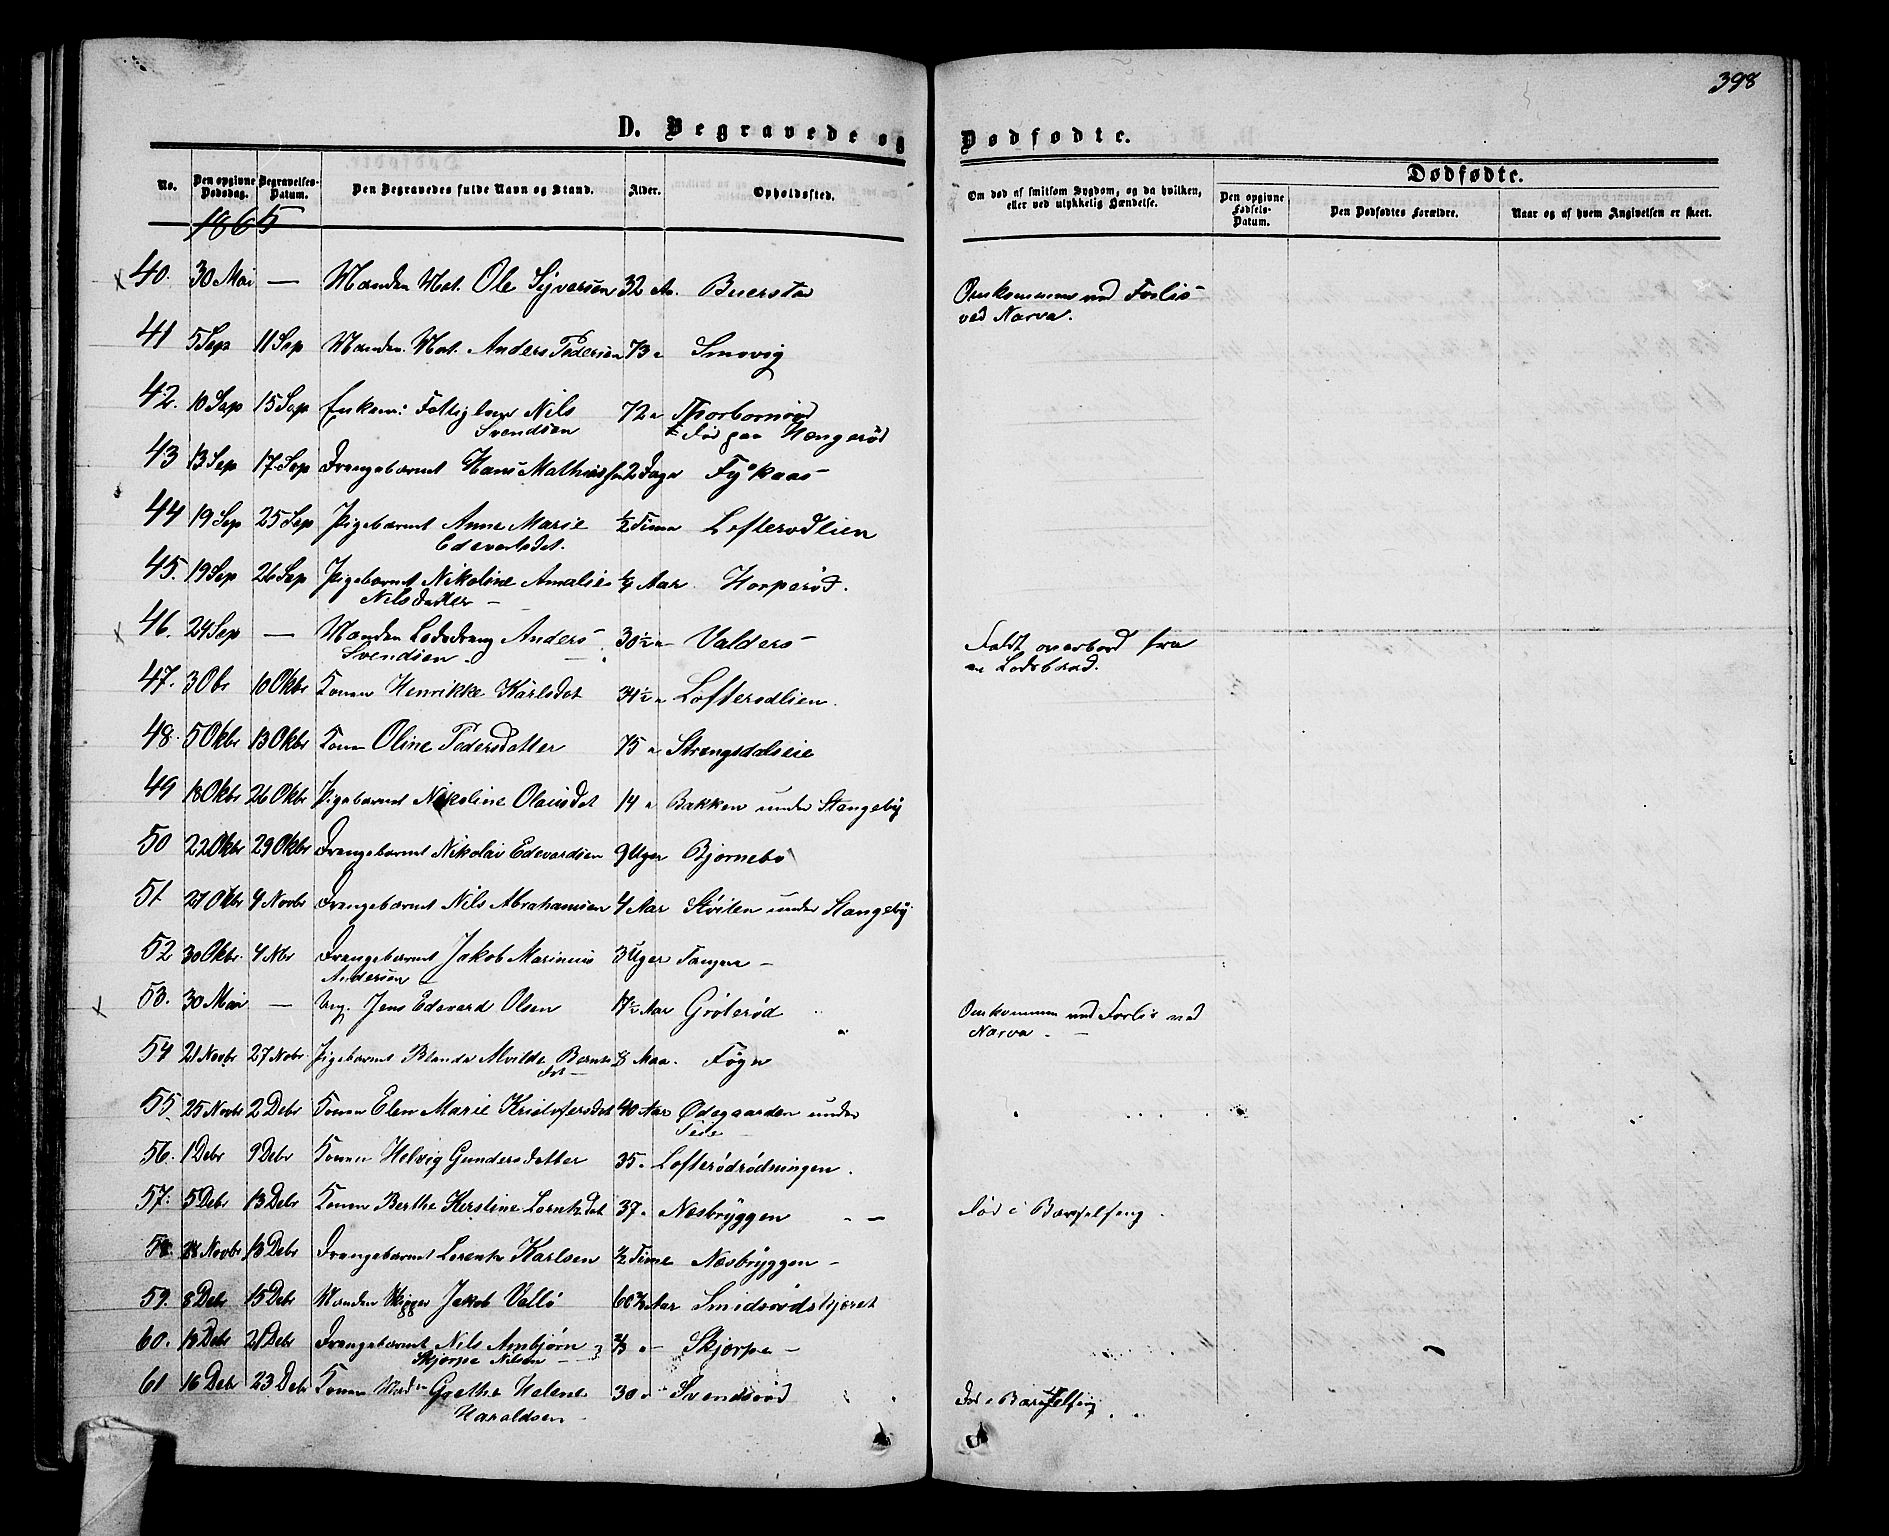 398
D. Begravede og Dødfødte.
No. Den opgivne Dødsdag. Begravelses-Datum. Den Begravedes fulde Navn og Stand. Alder. Opholdssted. Om død af smitsom Sygdom, og da hvilken, eller ved ulykkelig Hændelse. Dødfødte. Den opgivne Fødsels-Datum. Den Dødfødtes Forældre. Naar og af hvem Angivelsen er skeet.
1865
40. 30 Mai — Manden Mat. Ole Syversen 32 A. Buerstø Omkommen ved Forlis
ved Narva.
41 5 Sep 11 Sep Manden Mat. Anders Pedersen 73 " Smovig
42. 10 Sep 15 Sep Enkem: Fattiglem Nils 72 " Thorbornrød
Svendsen Død paa Hængerød
43 13 Sep 17 Sep Drengebarnet Hans Mathiassen 2 Dage Fyskaas
44 19 Sep 25 Sep Pigebarnet Anne Marie ½ Time Lofterødlien
Edevartsdt.
45. 19 Sep 26 Sep Pigebarnet Nikoline Amalie ¼ Aar Horperød.
Nilsdatter —
46. 24 Sep — Manden Lodsdreng Anders 30½ " Valders Faldt overbord fra
Svendsen en Lodsbaad.
47. 3 Obr 10 Okbr Konen Henrikke Karlsdat 34½ " Lofterødlien.
48. 5 Okbr 13 Okbr Konen Oline Pedersdatter 75 " Strengsdalseie
49 18 Okbr 26 Okbr Pigebarnet Nikoline Olausdat 14 " Bakken under Stangeby
50 22 Okbr 29 Okbr Drengebarnet Nikolai Edevardsen 9 Uger Bjørnebo
51. 27 Okbr 4 Novbr Drengebarnet Nils Abrahamsen 4 Aar Hvilen under Stangeby
52 30 Okbr. 4 Nbr Drengebarnet Jakob Marinius 3 Uger Tangen —
Andersen —
53. 30 Mai — Ung. Jens Edevard Olsen 17½ Aar Grøterød Omkommen ved Forlis ved
Narva —
54 21 Novbr 27 Novbr Pigebarnet Blanda Alvilde Bernts 8 Maa. Føyn
dat —
55. 25 Novbr 2 Debr Konen Elen Marie Kristofersdat 40 Aar Ødegaarden under
Teie
56. 1 Debr 9 Debr Konen Helvig Gundersdatter 35 " Lofterødrødningen.
57. 5 Debr 13 Debr Konen Berthe Kerstine Lorntzdat 37 " Næsbryggen — Død i Barselseng.
58. 28 Novbr 13 Debr Drengebarnet Lorents Karlsen ½ Time Næsbryggen —
59. 8 Debr 15 Debr Manden Skipper Jakob Vallø 60¾ Aar Smidsrødskjæret
60. 18 Debr 21 Debr Drengebarnet Nils Arnbjørn ¾ " — Skjerpe —
Skjerpe Nilsen —
61 16 Debr 23 Debr Konen Grethe Helene 30 " Svendsrød Død i Barselseng
Haraldsen